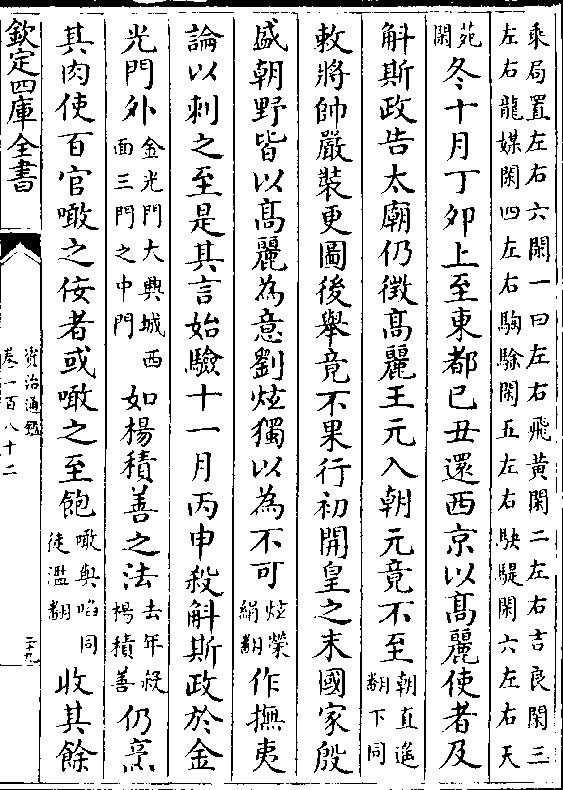 乘局置左右六閑一曰左右飛黃閑二左右吉良閑三
左右龍媒閑四左右騊駼閑五左右駃騠閑六左右天
苑閑冬十月丁夘上至東都已丑還西京以髙麗使者及
斛斯政告太廟仍徵髙麗王元入朝元竟不至朝直遥翻下同
敕將帥嚴裝更圖後舉竟不果行初開皇之末國家殷
盛朝野皆以髙麗為意劉炫獨以為不可炫榮絹翻作撫夷
論以刺之至是其言始驗十一月丙申殺斛斯政於金
光門外金光門大興城西面三門之中門如楊積善之法去年殺楊積善仍烹
其肉使百官噉之佞者或噉之至飽噉與啗同徒濫翻收其餘
欽定四庫全書
資治通鑑
卷一百八十二
二十九